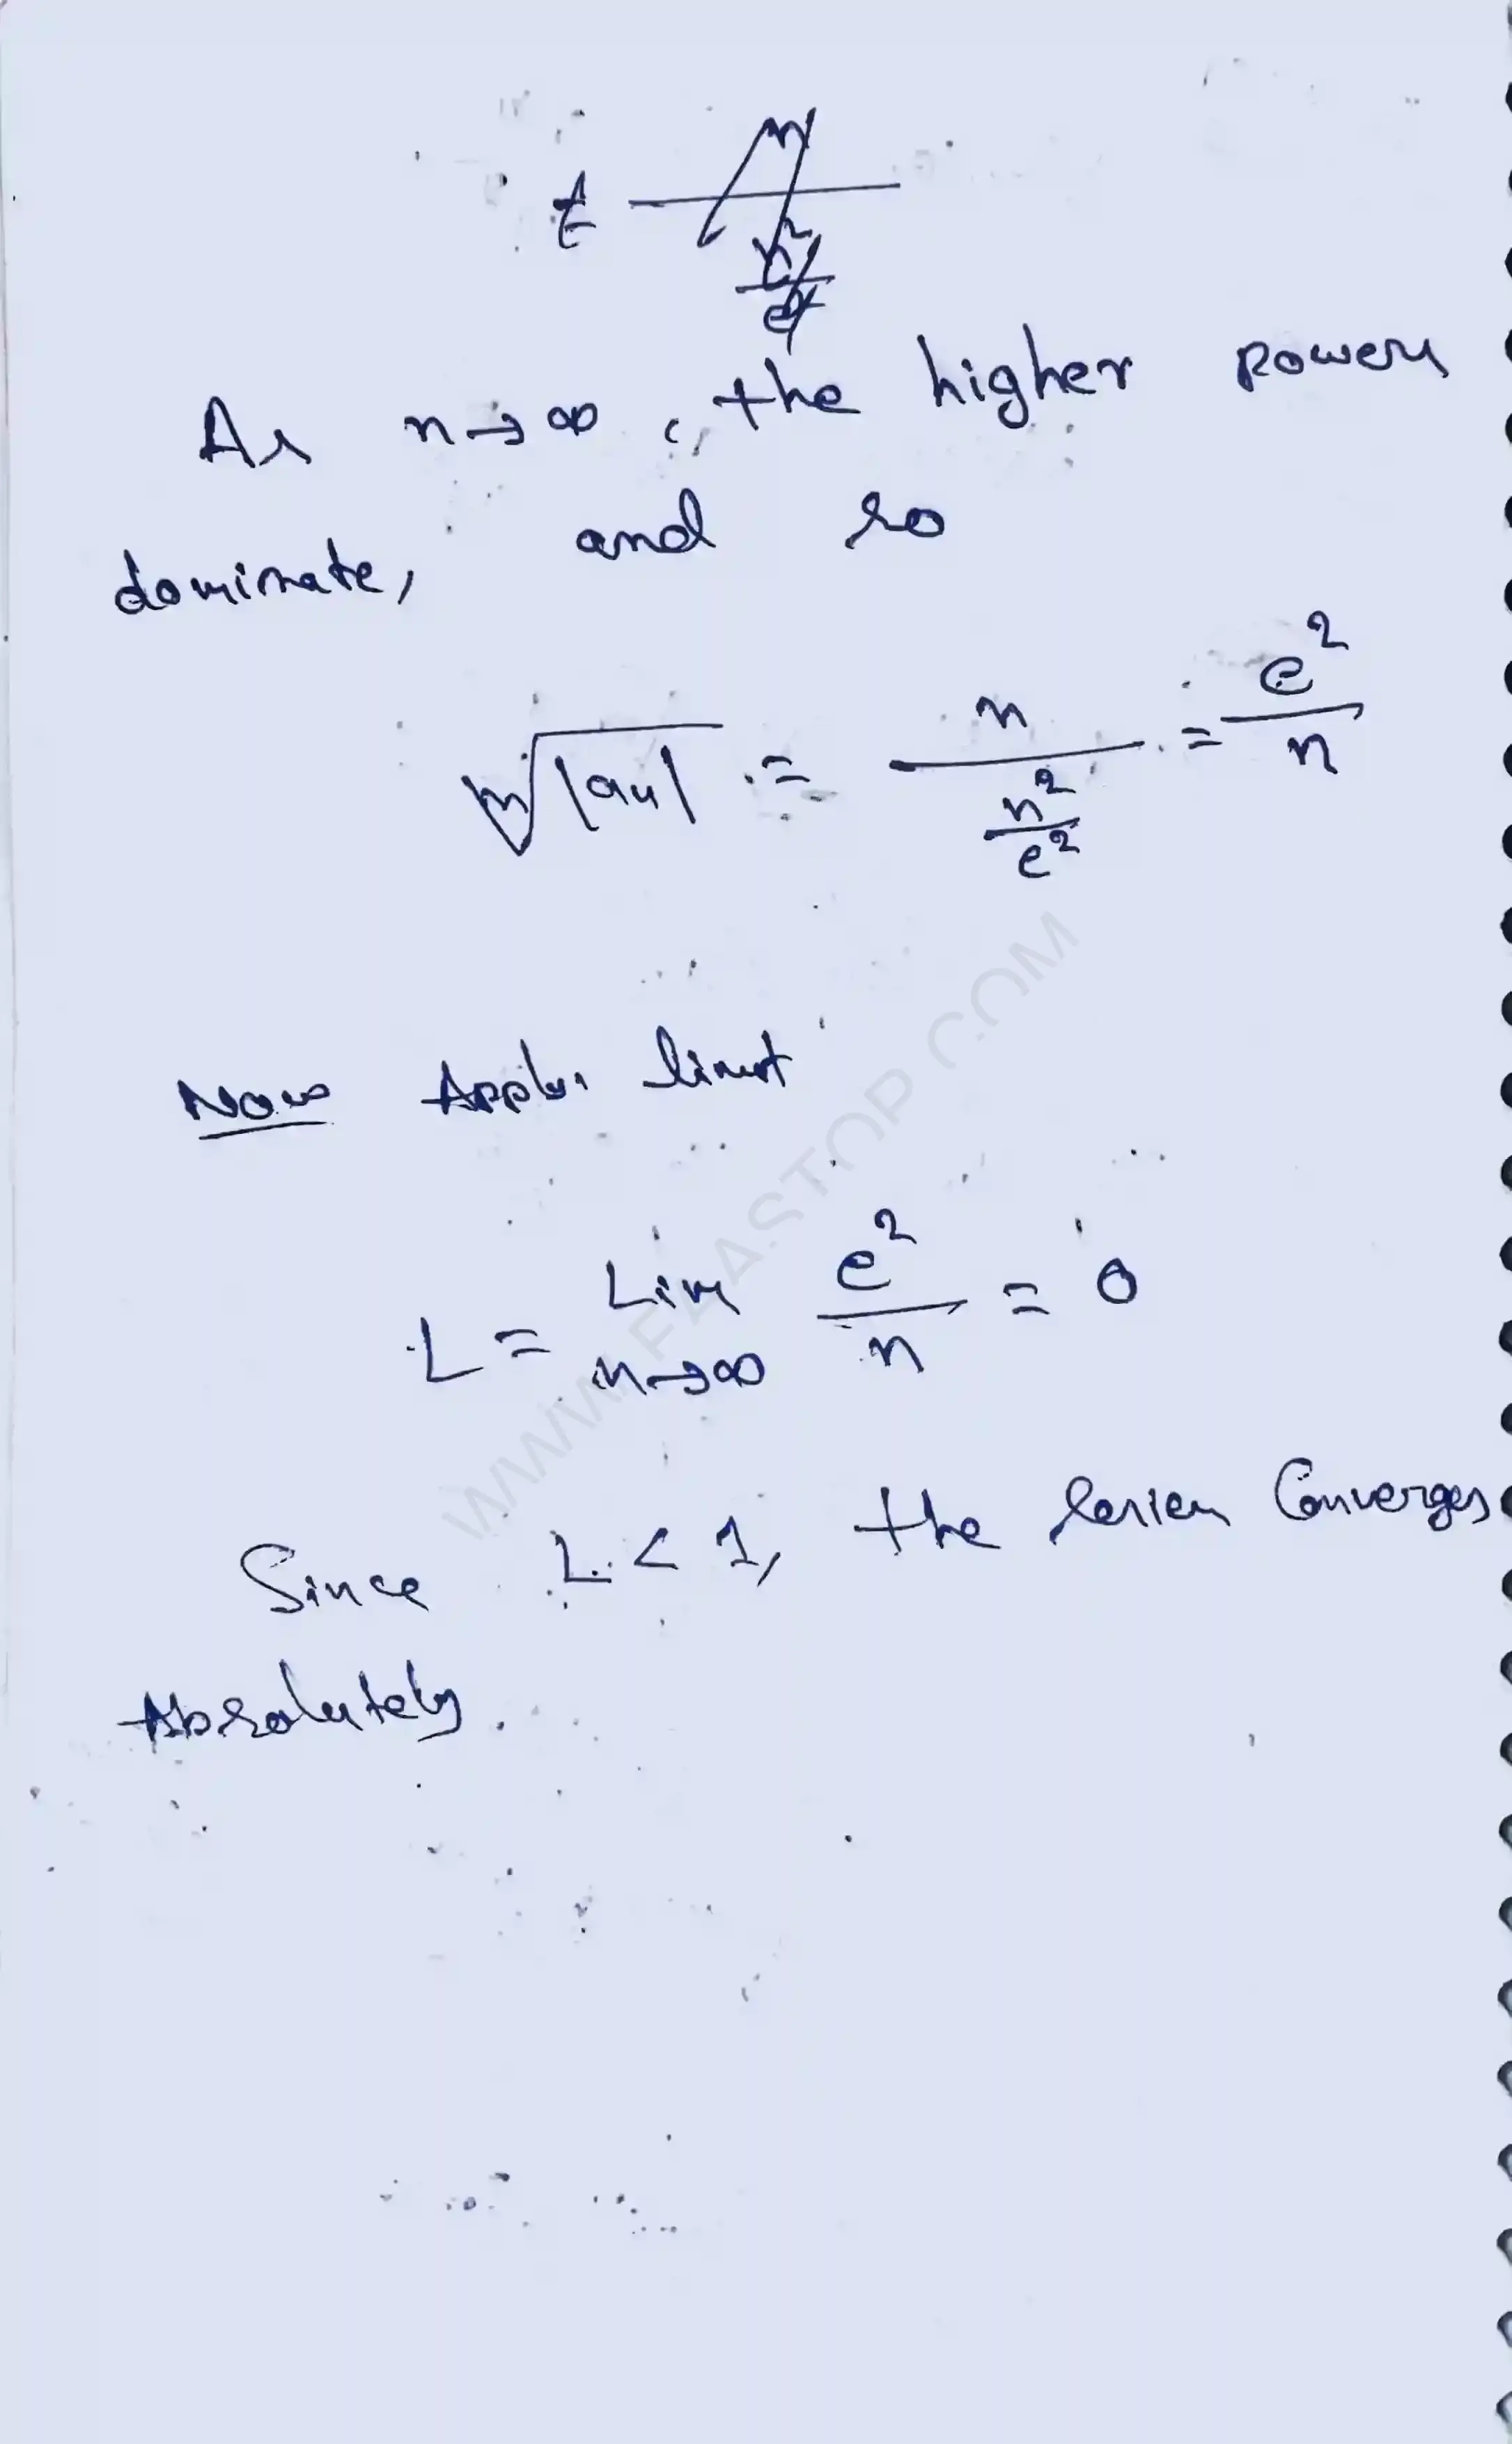 As n→∞, the higher powers
dominate, and so
ⁿ√|aₙ| = n / (n²/e²) = e²/n
Now Apply limit
L = Lim n→∞ e²/n = 0
Since L < 1, the series Converges
Absolutely.
WWW.FAASTOP.COM